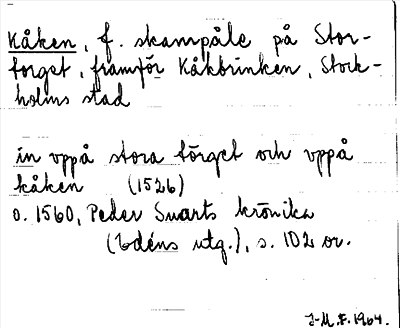 Kåken, f. skampåle på Stor-
torget, framför Kåkbrinken, Stock-
holms stad
in vppå stora törget och vppå
kåken (1526)
o. 1560, Peder Swarts krönika
(Edéns utg.), s. 102 or.
J-M.F. 1964.